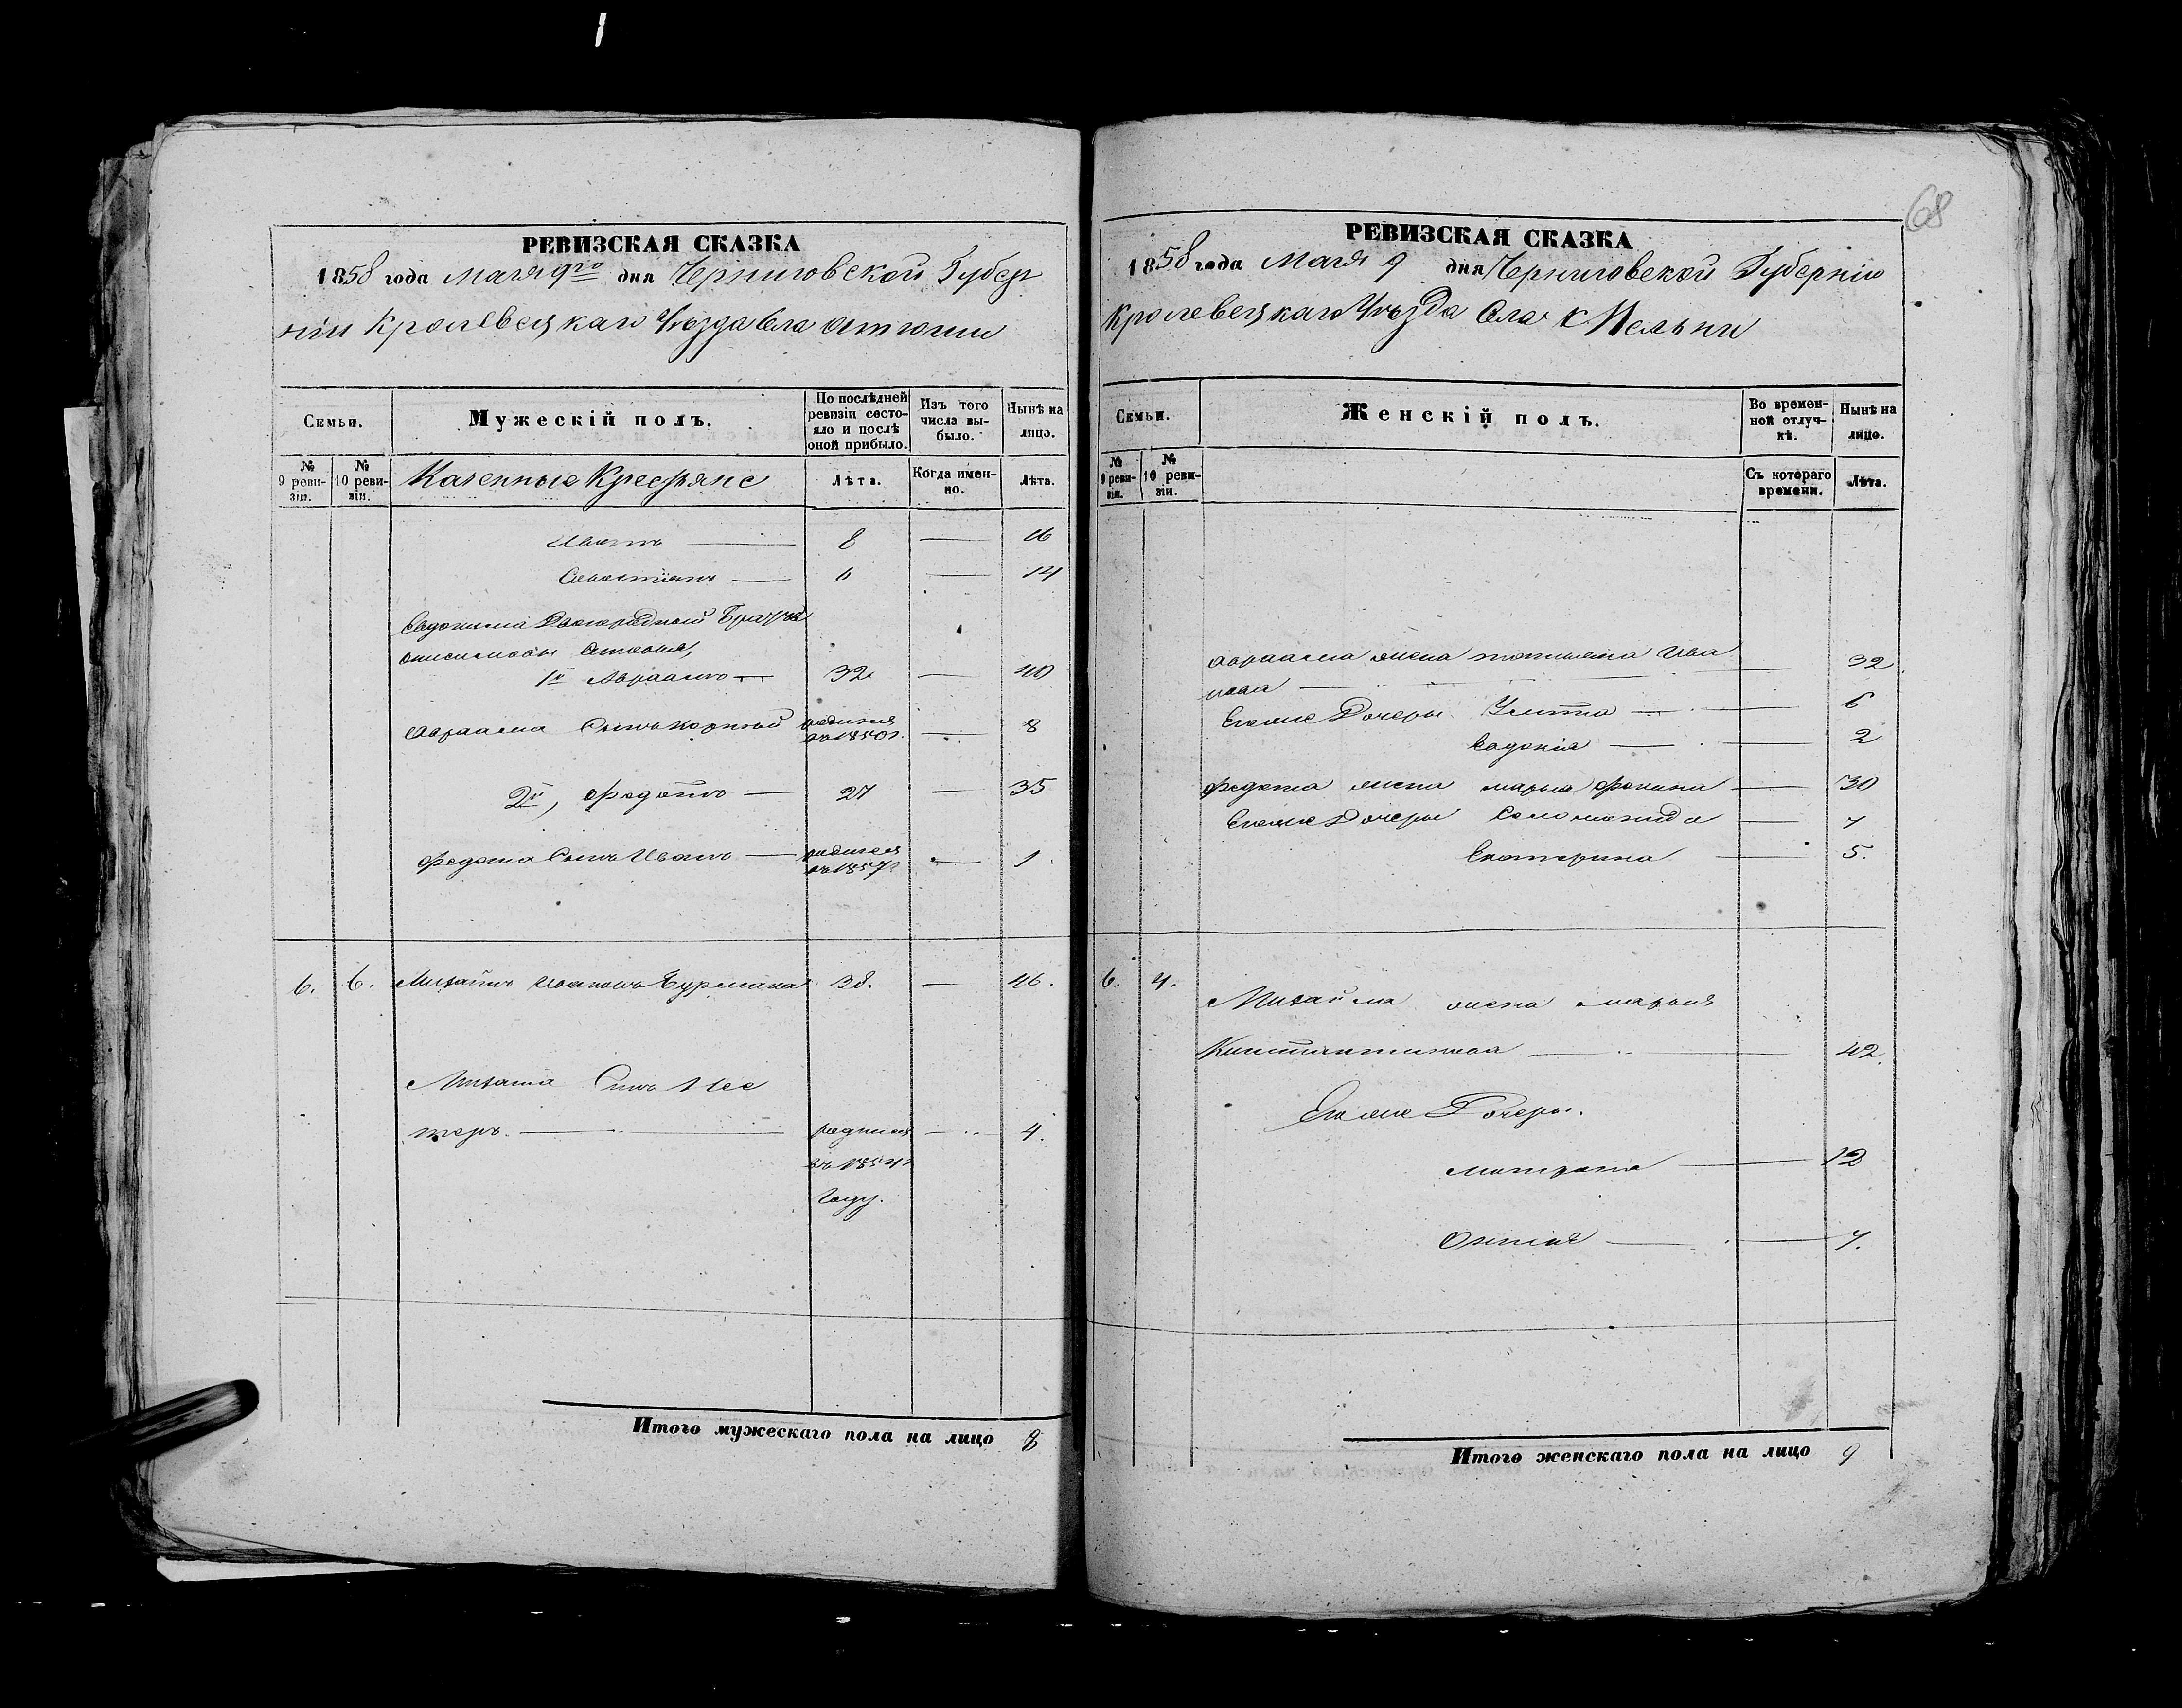 68
РЕВИЗСКАЯ СКАЗКА
1858 года Мая 9го дня Черниговской Губер
ніи Кролевецкаго Уѣзда Села
Семьи.
Мужескій полъ.
По послѣдней ревизіи состояло и послѣ оной прибыло.
Изъ того числа выбыло.
Нынѣ на лицо.
№ 9 ревизіи.
№ 10 ревизіи.
Казенные Крестьяне
Лѣта.
Когда именно.
Лѣта.
Иванъ — 8 — 16
Севастіанъ — 6 — 14
Евдокима Двоюродный
1й Авраамъ — 32 — 40
Авраама Сынъ родился въ 1850г. — 8
2й, Федотъ — 27 — 35
Федота Сынъ Иванъ — родился въ 1857г — 1
6. 6. Михайло Ивановъ Бурмака 38. — 46.
Михайла Сынъ Нес
теръ. — родился — 4.
въ 1854г
Году.
Итого мужескаго пола на лицо 8
РЕВИЗСКАЯ СКАЗКА
1858 года Мая 9 дня Черниговской Губерніи
Кролевецкаго Уѣзда Села
Семьи.
Женскій полъ.
Во временной отлучкѣ.
Нынѣ на лицо.
№ 9 ревизіи.
№ 10 ревизіи.
Съ котораго времени.
Лѣта.
Авраама жена Татьяна Ива
нова — 32
Егоже Дочеры Улита — 6
Евдокія — 2
Федота жена Марья Фомина — 30
Егоже Дочеры Соломонида — 7
Екатерина — 5.
6. 4.
Михайла жена Марья
Константинова — 42.
Егоже Дочеры.
Матрона — 12
7.
Итого женскаго пола на лицо 9